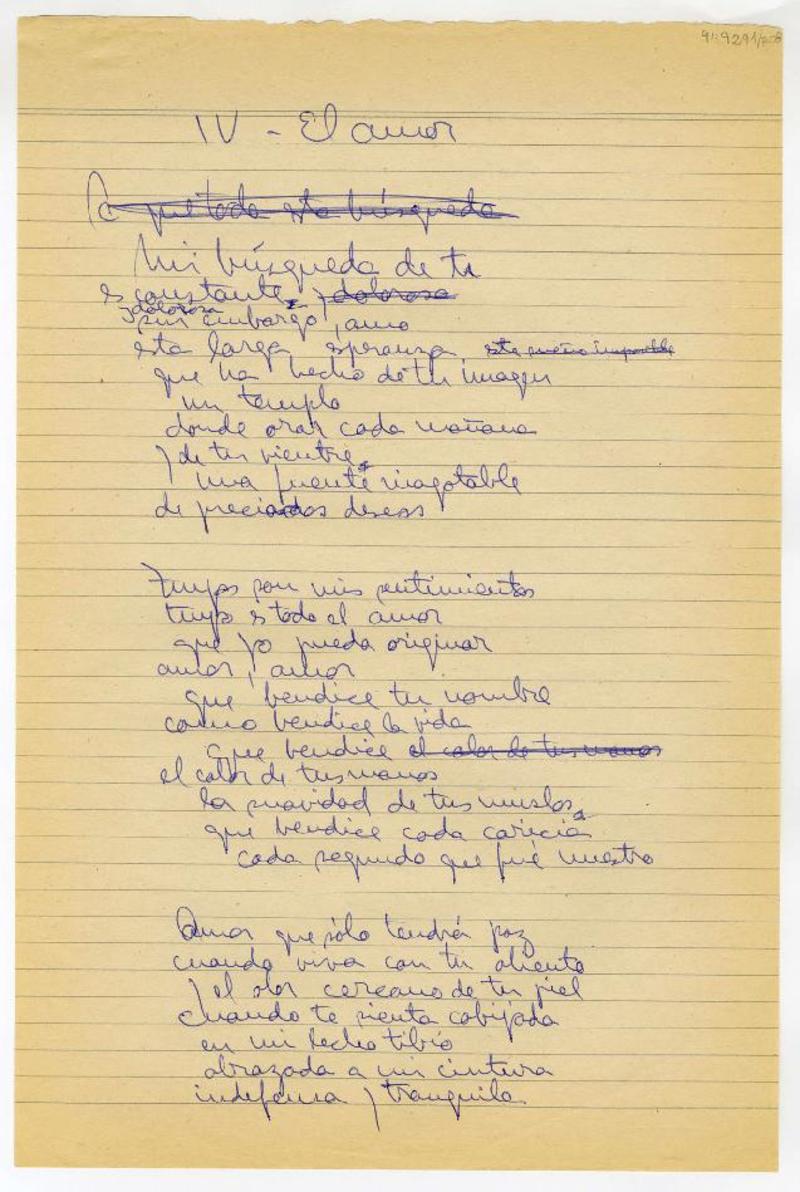 91:9291/
IV - El amor
que toda esta búsqueda
Mi búsqueda de ti
es constante, y dolorosa
y dolorosa
sin embargo, amo
esta larga esperanza, este sueño imposible
que ha hecho de tu imagen
un templo
donde orar cada mañana
y de tu vientre,
una fuente inagotable
de preciados deseos
Tuyos son mis sentimientos
tuyo es todo el amor
que yo pueda originar
amor, amor
que bendice tu nombre
como bendice la vida
que bendice el calor de tus manos
el calor de tus manos
la suavidad de tus muslos,
que bendice cada caricia
cada segundo que fué nuestro
Amor que sólo tendrá paz
cuando viva con tu aliento
y el olor cercano de tu piel
cuando te sienta cobijada
en mi lecho tibio
abrazada a mi cintura
indefensa y tranquila